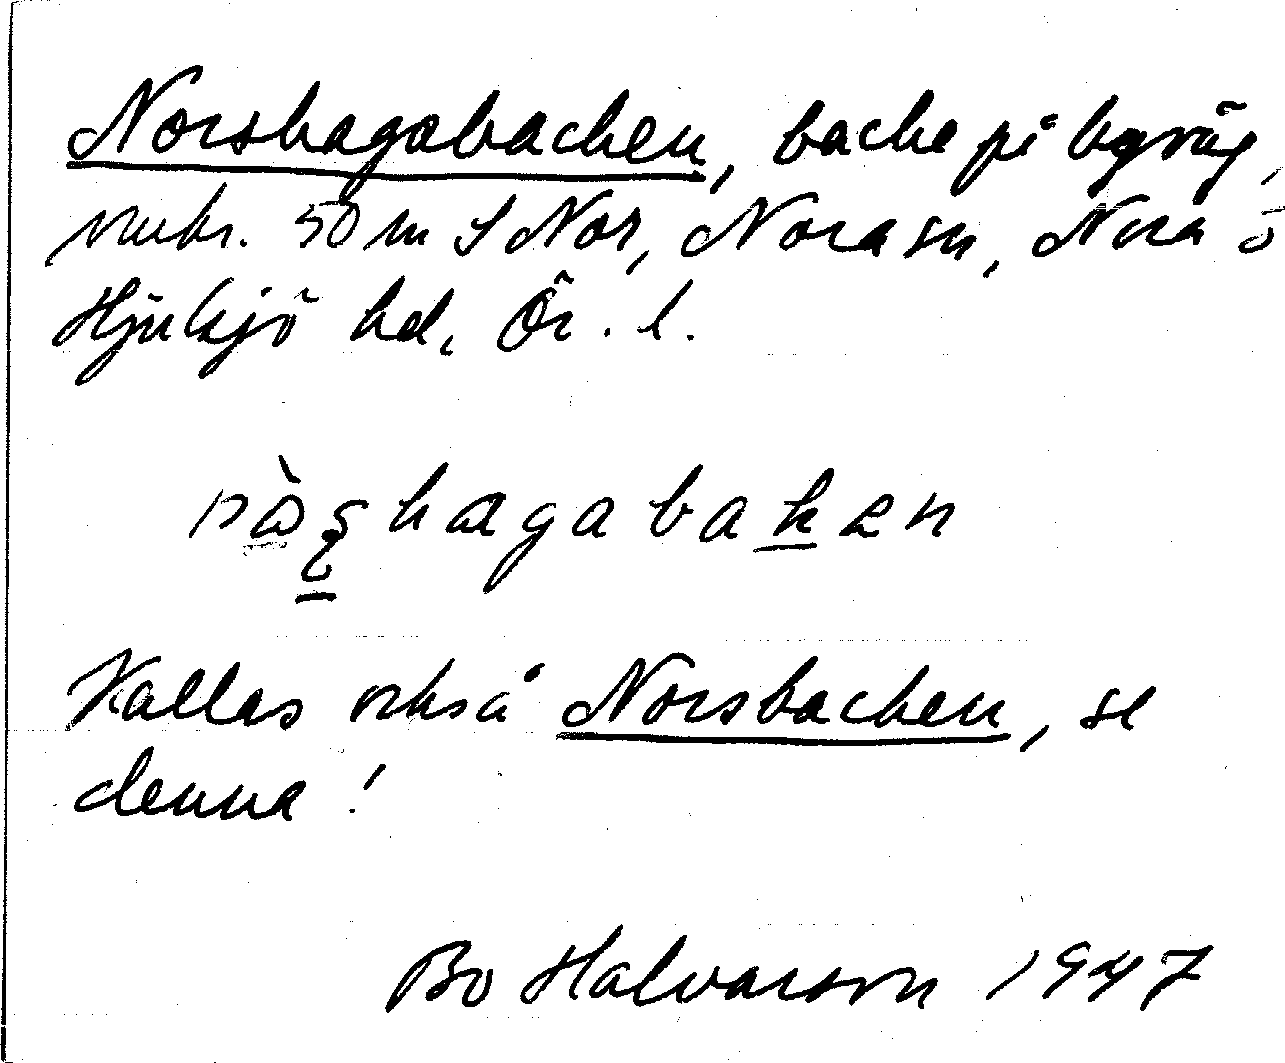 Norshagabacken, backe på byväg,
omkr. 50 m S Nor, Nora sn, Nora o
Hjulsjö hd, Ör. l.
nàʂhagabaken
Kallas också Norsbacken, se
denna!
Bo Halvarson 1947